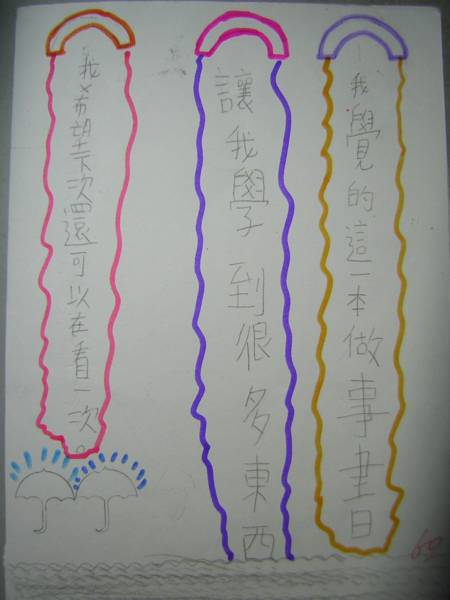 我覺的這一本做事書
讓我學到很多東西
我希望下次還可以在看一次。
60